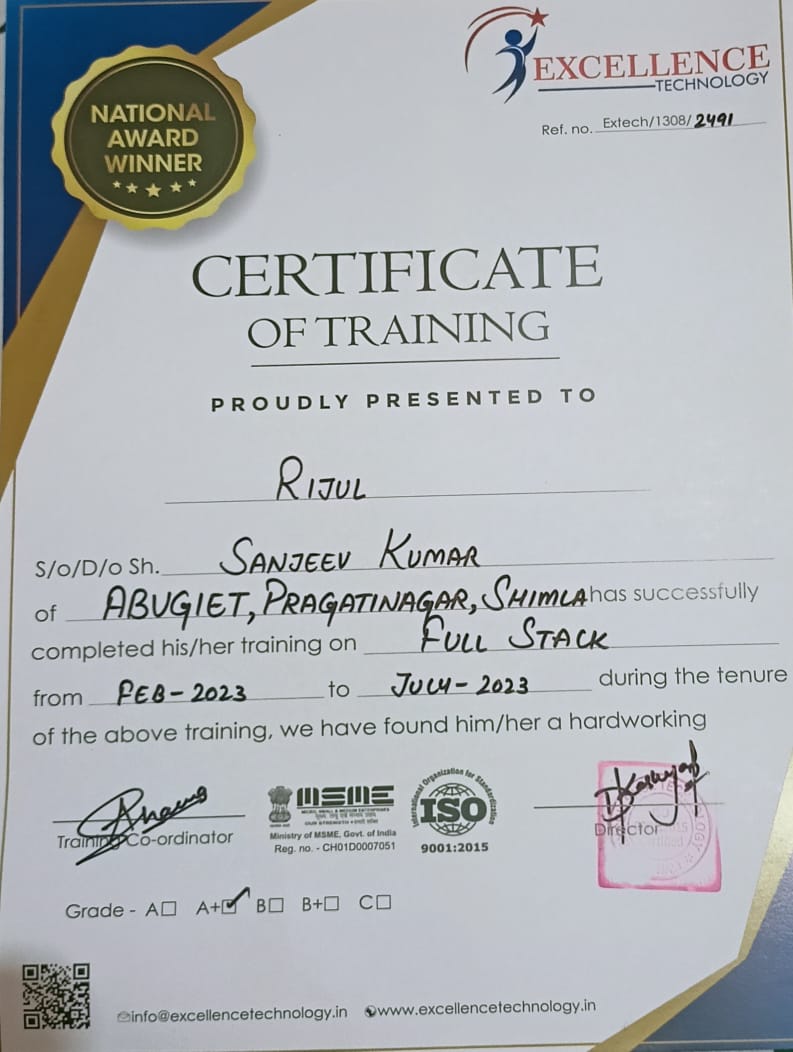 EXCELLENCE
TECHNOLOGY
Ref. no. Extech/1308/2491
NATIONAL
AWARD
WINNER
CERTIFICATE
OF TRAINING
PROUDLY PRESENTED TO
RIJUL
S/o/D/o Sh. SANJEEV KUMAR
of ABUGIET, PRAGATINAGAR, SHIMLA has successfully
completed his/her training on FULL STACK
from FEB-2023 to JULY-2023 during the tenure
of the above training, we have found him/her a hardworking
Training Co-ordinator
MSME
MICRO, SMALL & MEDIUM ENTERPRISES
सूक्ष्म, लघु एवं मध्यम उद्यम
OUR STRENGTH • हमारी शक्ति
Ministry of MSME, Govt. of India
Reg. no. - CH01D0007051
International Organization for Standardization
ISO
9001:2015
Director
Grade - A☐ A+☑ B☐ B+☐ C☐
info@excellencetechnology.in www.excellencetechnology.in